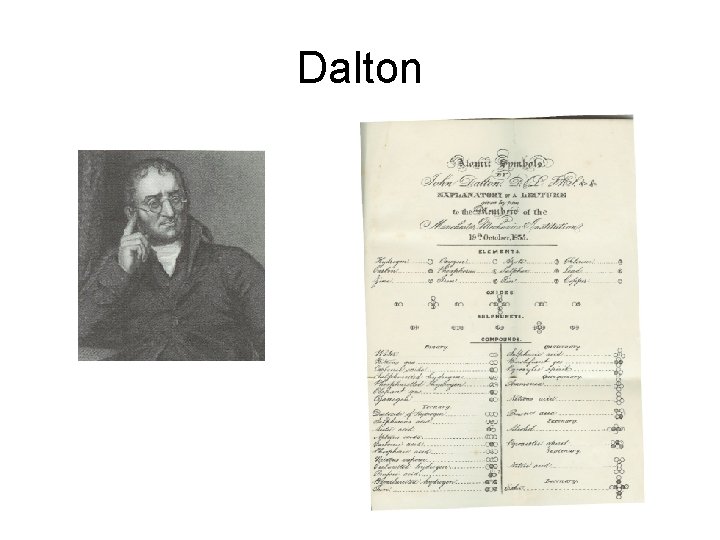 Dalton
Atomic Symbols
BY
John Dalton, D.C.L. F.R.S. &c. &c.
EXPLANATORY OF A LECTURE
given by him
to the Members of the
Manchester Mechanics Institution
19th October, 1835.
ELEMENTS.
Hydrogen Oxygen Azote Chlorine
Carbon Phosphorus Sulphur Lead
Zinc Iron Tin Copper
OXIDES.
SULPHURETS.
COMPOUNDS.
Binary Quaternary
Water Sulphuric acid
gas Binolefiant gas
Carbonic oxide Pyroxylic Spirit
Sulphuretted hydrogen Quinquenary
Phosphuretted hydrogen Ammonia
Olefiant gas
Cyanogen Nitrous acid
Ternary
Deutoxide of hydrogen Prussic acid
Sulphurous acid
acid Alcohol
Nitrous oxide
Carbonic acid Pyroacetic spirit
Phosphoric acid
Nitrous vapour
Carburetted hydrogen Nitric acid
Prussic acid
hydrogen